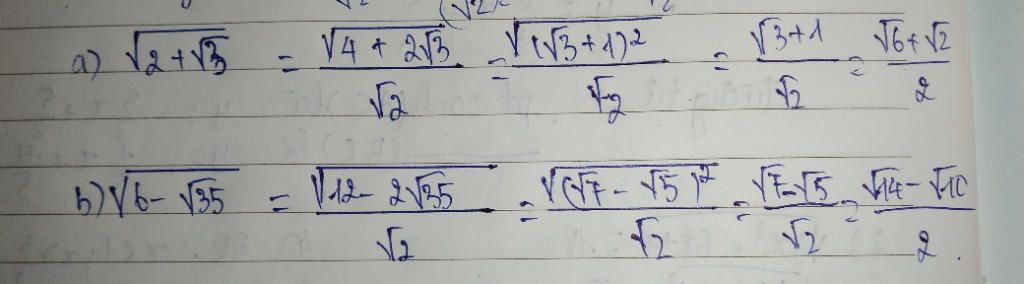 a) √(2+√3) = √(4 + 2√3)/√2 = √((√3+1)²)/√2 = (√3+1)/√2 = (√6+√2)/2
b) √(6-√35) = √(12-2√35)/√2 = √((√7-√5)²)/√2 = (√7-√5)/√2 = (√14-√10)/2.